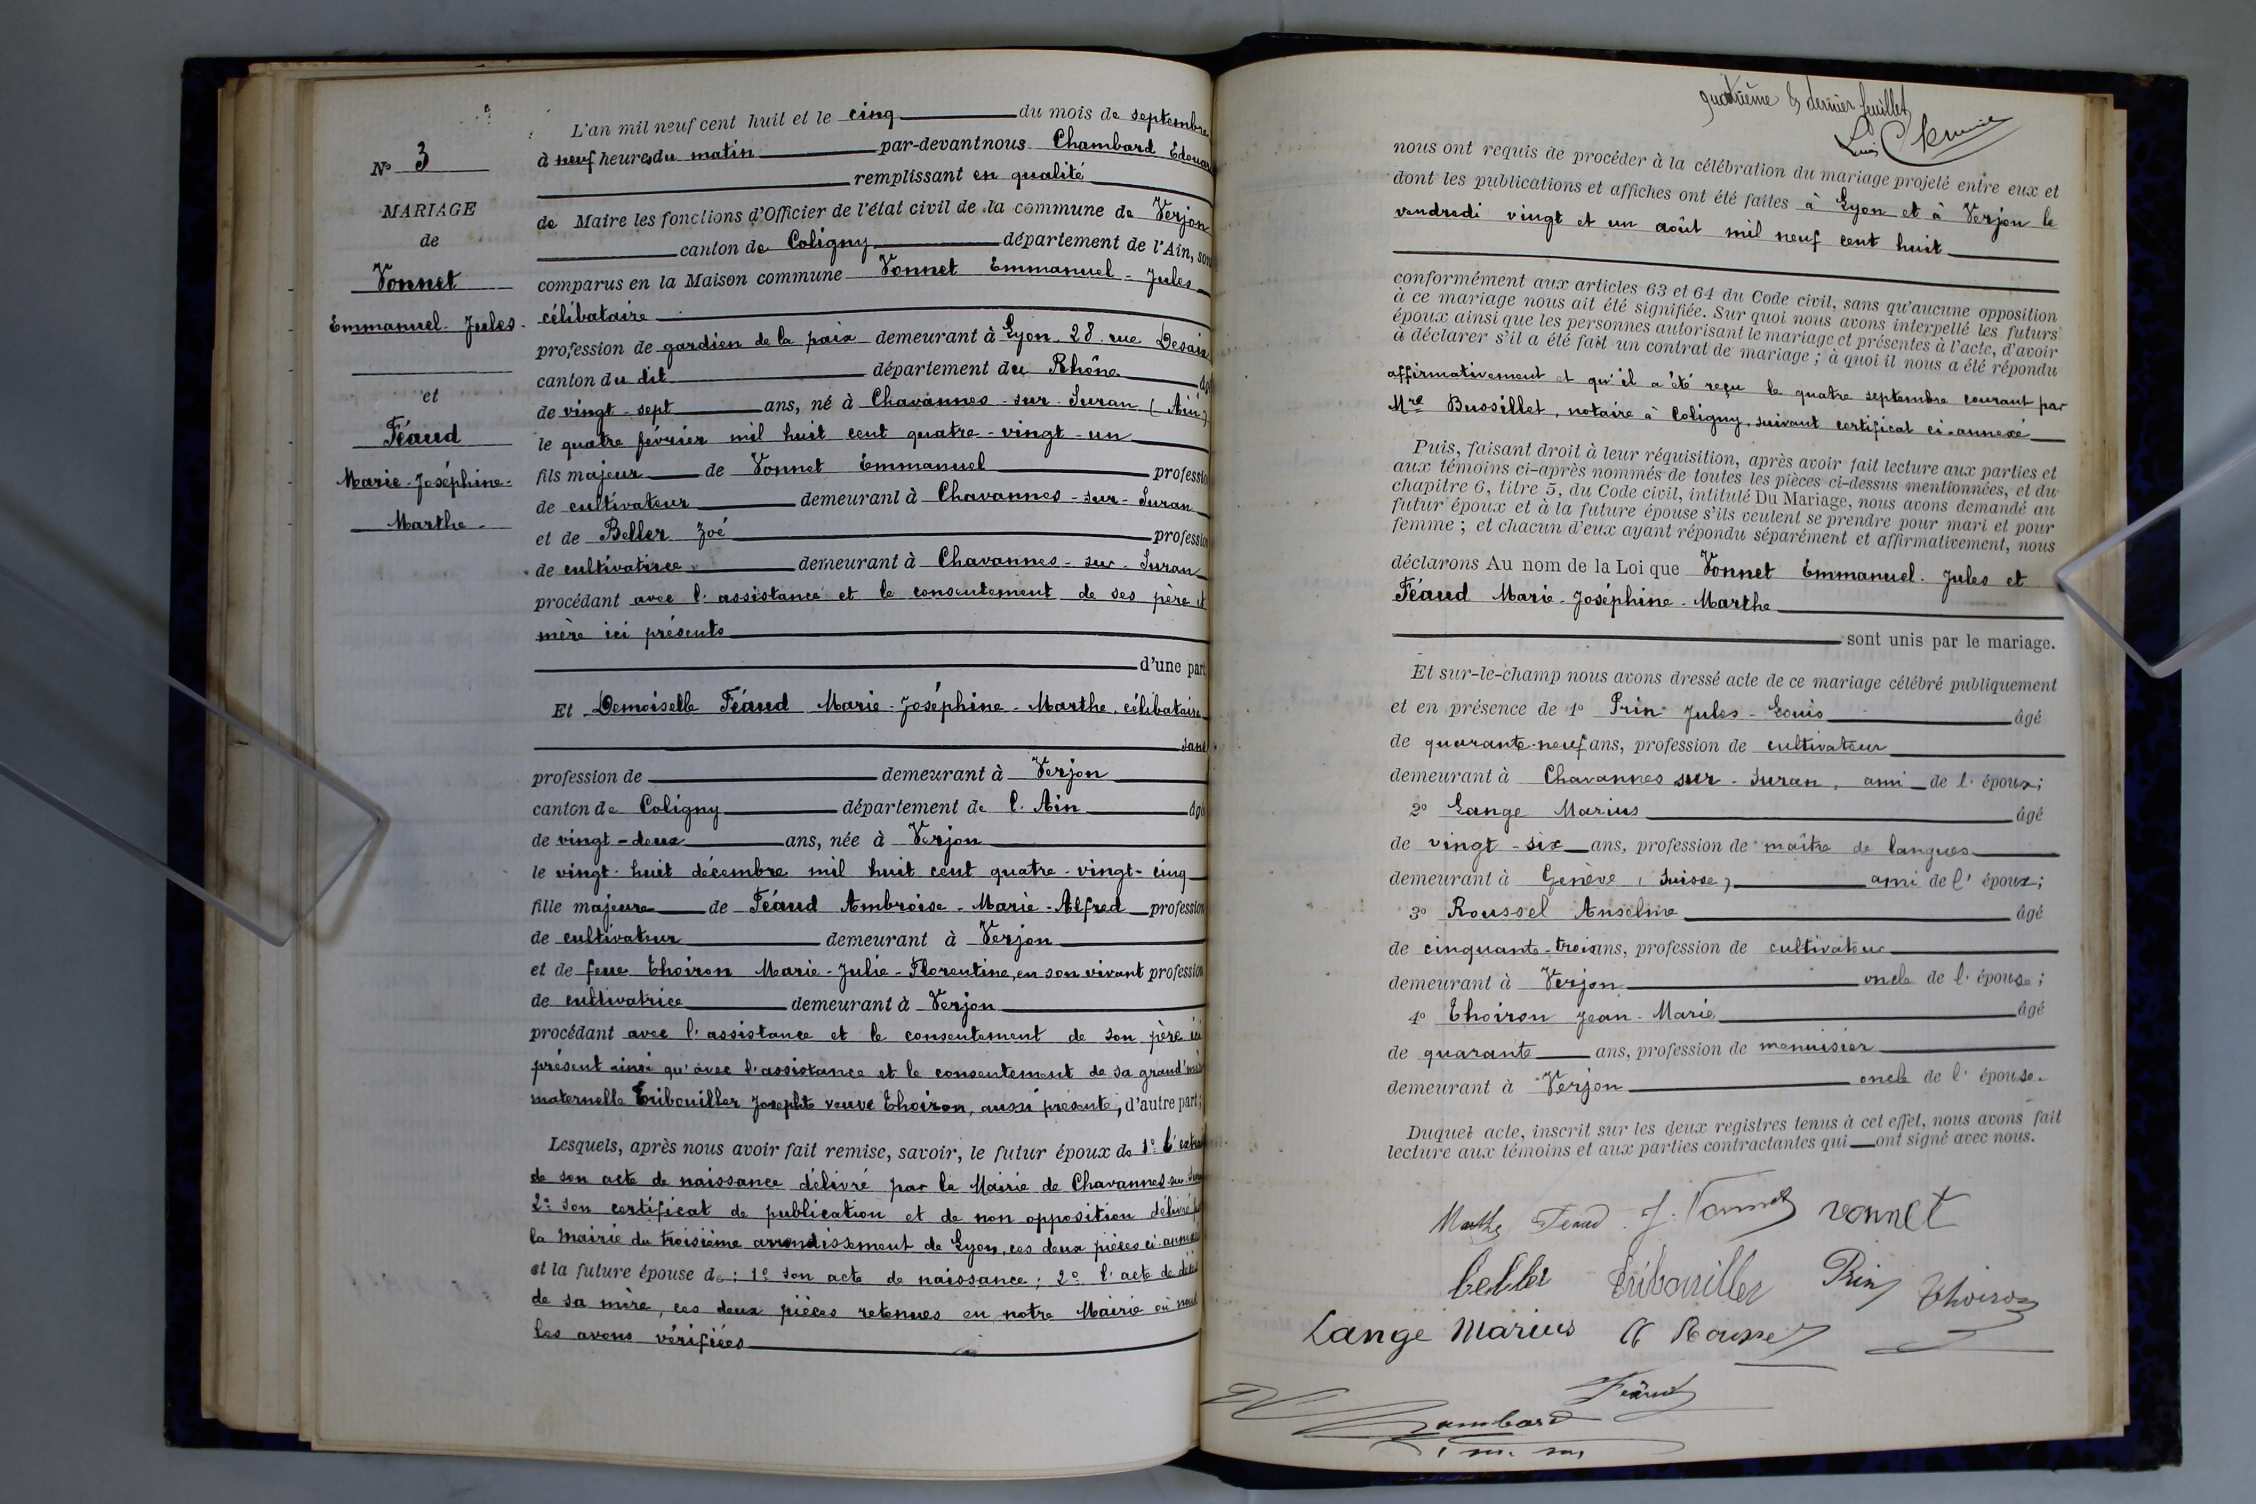 N° 3
MARIAGE
de
Vonnet
Emmanuel-Jules-
et
Féaud
Marie-Joséphine-
Marthe-
L'an mil neuf cent huit et le cinq du mois de septembre
à neuf heures du matin par-devant nous Chambard Edouard
remplissant en qualité
de Maire les fonctions d'Officier de l'état civil de la commune de Verjon
canton de Coligny département de l'Ain, sont
comparus en la Maison commune Vonnet Emmanuel-Jules
célibataire
profession de gardien de la paix demeurant à Lyon, 28 rue Desaix
canton du dit département du Rhône âgé
de vingt-sept ans, né à Chavannes-sur-Suran (Ain)
le quatre février mil huit cent quatre-vingt-un
fils majeur de Vonnet Emmanuel profession
de cultivateur demeurant à Chavannes-sur-Suran
et de Beller Zoé profession
de cultivatrice demeurant à Chavannes-sur-Suran
procédant avec l'assistance et le consentement de ses père et
mère ici présents
d'une part
Et Demoiselle Féaud Marie-Joséphine-Marthe, célibataire
sans
profession de demeurant à Verjon
canton de Coligny département de l'Ain âgée
de vingt-deux ans, née à Verjon
le vingt-huit décembre mil huit cent quatre-vingt-cinq
fille majeure de Féaud Ambroise-Marie-Alfred profession
de cultivateur demeurant à Verjon
et de feue Thoiron Marie-Julie-Florentine, en son vivant profession
de cultivatrice demeurant à Verjon
procédant avec l'assistance et le consentement de son père ici
présent ainsi qu'avec l'assistance et le consentement de sa grand'mère
maternelle Tribouiller Josephte veuve Thoiron, aussi présente, d'autre part;
Lesquels, après nous avoir fait remise, savoir, le futur époux de 1° l'extrait
de son acte de naissance délivré par la Mairie de Chavannes-sur-Suran
2° son certificat de publication et de non opposition délivré par
la Mairie du troisième arrondissement de Lyon, ces deux pièces ci-annexées
et la future épouse de : 1° son acte de naissance ; 2° l'acte de décès
de sa mère, ces deux pièces retenues en notre Mairie où nous
les avons vérifiées
quatrième & dernier feuillet
nous ont requis de procéder à la célébration du mariage projeté entre eux et
dont les publications et affiches ont été faites à Lyon et à Verjon le
vendredi vingt et un août mil neuf cent huit
conformément aux articles 63 et 64 du Code civil, sans qu'aucune opposition
à ce mariage nous ait été signifiée. Sur quoi nous avons interpellé les futurs
époux ainsi que les personnes autorisant le mariage et présentes à l'acte, d'avoir
à déclarer s'il a été fait un contrat de mariage ; à quoi il nous a été répondu
affirmativement et qu'il a été reçu le quatre septembre courant par
Mre Bussillet, notaire à Coligny, suivant certificat ci-annexé
Puis, faisant droit à leur réquisition, après avoir fait lecture aux parties et
aux témoins ci-après nommés de toutes les pièces ci-dessus mentionnées, et du
chapitre 6, titre 5, du Code civil, intitulé Du Mariage, nous avons demandé au
futur époux et à la future épouse s'ils veulent se prendre pour mari et pour
femme ; et chacun d'eux ayant répondu séparément et affirmativement, nous
déclarons Au nom de la Loi que Vonnet Emmanuel-Jules et
Féaud Marie-Joséphine-Marthe
sont unis par le mariage.
Et sur-le-champ nous avons dressé acte de ce mariage célébré publiquement
et en présence de 1° Prin Jules-Louis âgé
de quarante-neuf ans, profession de cultivateur
demeurant à Chavannes sur-Suran, ami de l'époux;
2° Lange Marius âgé
de vingt-six ans, profession de maître de langues
demeurant à Genève (Suisse) ami de l'époux;
3° Roussel Anselme âgé
de cinquante-trois ans, profession de cultivateur
demeurant à Verjon oncle de l'épouse;
4° Thoiron Jean-Marie âgé
de quarante ans, profession de menuisier
demeurant à Verjon oncle de l'épouse.
Duquel acte, inscrit sur les deux registres tenus à cet effet, nous avons fait
lecture aux témoins et aux parties contractantes qui ont signé avec nous.
Marthe Féaud J. Vonnet vonnet
beller tribouiller Prin Thoiron
Lange Marius A Roussel
Féaud
Chambard